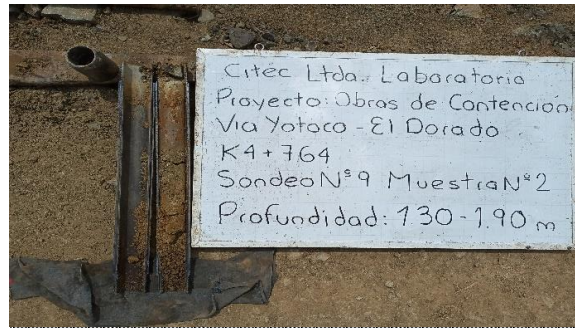 Citec Ltda. Laboratorio
Proyecto: Obras de Contención
Via Yotoco - El Dorado
K4+764
Sondeo N° 9 Muestra N° 2
Profundidad: 1.30 - 1.90 m